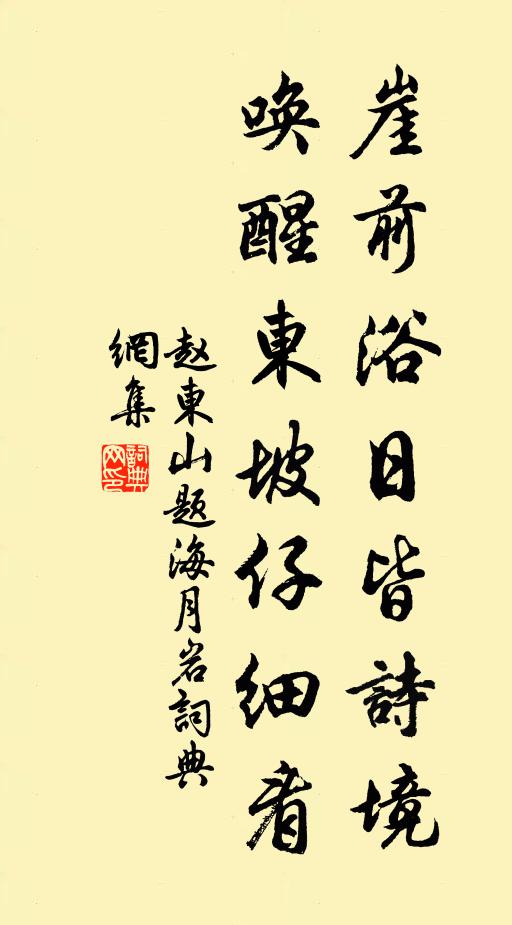 崖前浴日皆詩境
喚醒東坡仔細看
赵東山题海月岩詞典
網集
詞典網印